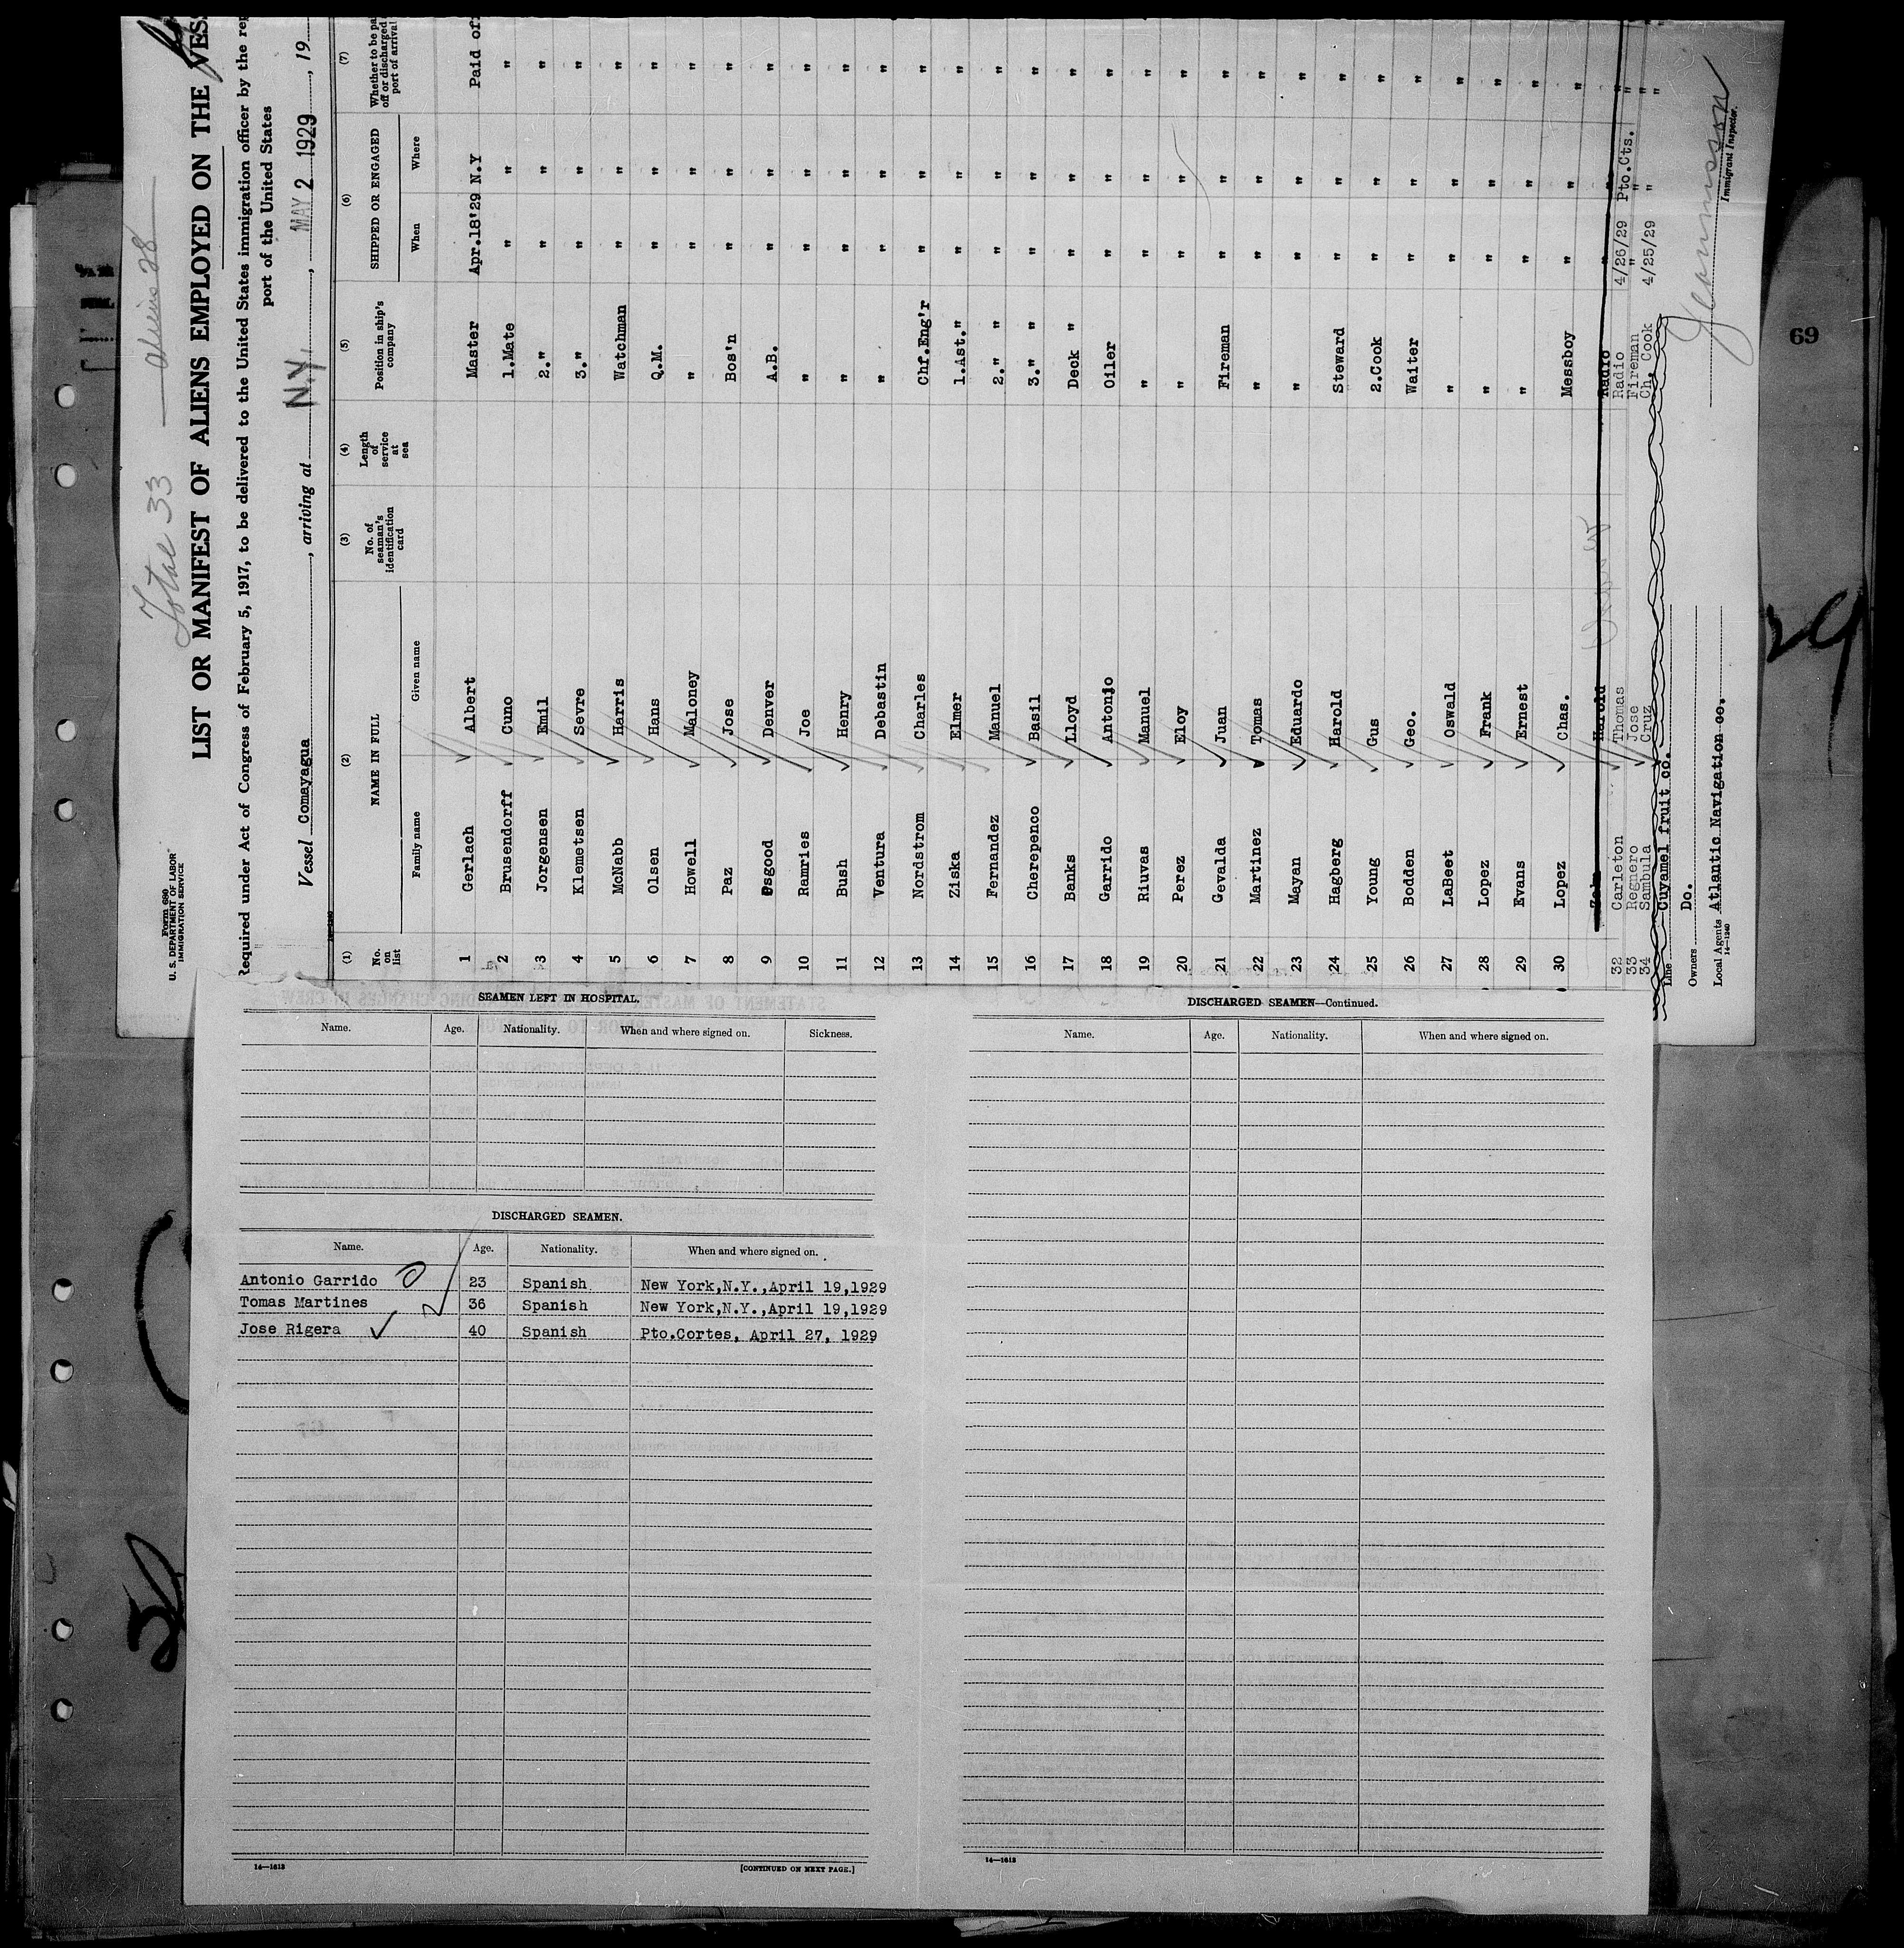 Total 33
Form 680
U. S. DEPARTMENT OF LABOR
IMMIGRATION SERVICE
LIST OR MANIFEST OF ALIENS EMPLOYED ON THE VES
Required under Act of Congress of February 5, 1917, to be delivered to the United States immigration officer by the rep
port of the United States
Vessel Comayagua, arriving at N.Y., MAY 2 1929, 19
(1) (2) (3) (4) (5) (6) (7)
No. on list NAME IN FULL No. of seaman's identification card Length of service at sea Position in ship's company SHIPPED OR ENGAGED Whether to be pa off or discharged port of arrival
Family name Given name When Where
1 Gerlach Albert Master Apr.18'29 N.Y Paid of
2 Brusendorff Cuno 1.Mate " " "
3 Jorgensen Emil 2." " " "
4 Klemetsen Sevre 3." " " "
5 McNabb Harris Watchman " " "
6 Olsen Hans Q.M. " " "
7 Howell Maloney " " " "
8 Paz Jose Bos'n " " "
9 Osgood Denver A.B. " " "
10 Ramries Joe " " " "
11 Bush Henry " " " "
12 Ventura Debastin " " " "
13 Nordstrom Charles Chf.Eng'r " " "
14 Ziska Elmer 1.Ast." " " "
15 Fernandez Manuel 2." " " " "
16 Cherepenco Basil 3." " " " "
17 Banks Lloyd Deck " " " "
18 Garrido Antonio Oiler " " "
19 Riuvas Manuel " " " "
20 Perez Eloy " " " "
21 Gevalda Juan Fireman " " "
22 Martinez Tomas " " " "
23 Mayan Eduardo " " " "
24 Hagberg Harold Steward " " "
25 Young Gus 2.Cook " " "
26 Bodden Geo. Waiter " " "
27 LaBeet Oswald " " " "
28 Lopez Frank " " " "
29 Evans Ernest " " " "
30 Lopez Chas. Messboy " " "
Harold Radio " "
32 Carleton Thomas Radio 4/26/29 Pto.Cts. "
33 Regnero Jose Fireman " " "
34 Sambula Cruz Ch. Cook 4/25/29 " "
Line Cuyamel fruit co.
Owners Do.
Local Agents Atlantic Navigation co.
14—1240
Immigrant Inspector.
69
SEAMEN LEFT IN HOSPITAL.
Name. Age. Nationality. When and where signed on. Sickness.
DISCHARGED SEAMEN.
Name. Age. Nationality. When and where signed on.
Antonio Garrido 23 Spanish New York,N.Y.,April 19,1929
Tomas Martines 36 Spanish New York,N.Y.,April 19,1929
Jose Rigera 40 Spanish Pto.Cortes, April 27, 1929
14—1613 [CONTINUED ON NEXT PAGE.]
DISCHARGED SEAMEN—Continued.
Name. Age. Nationality. When and where signed on.
14—1613